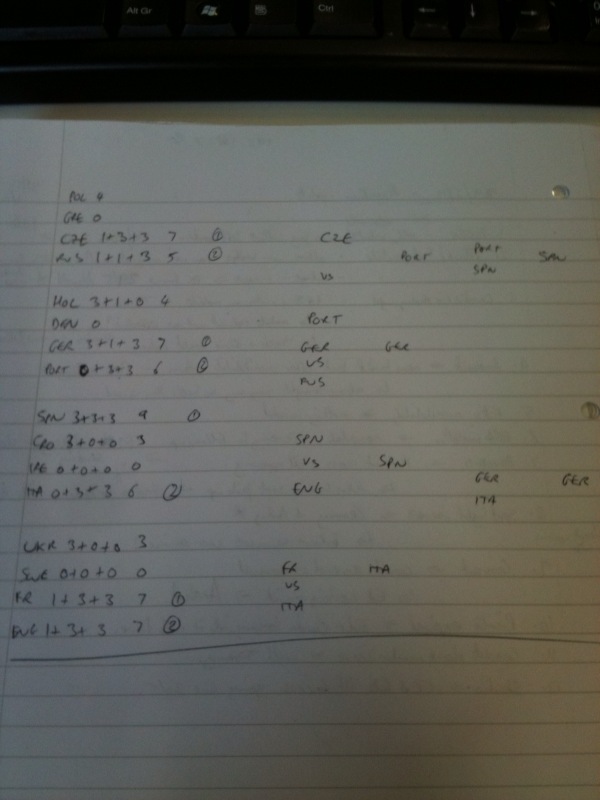 Alt Gr
Ctrl
POL 4
GRE 0
CZE 1+3+3 7 ① CZE
RUS 1+1+3 5 ② PORT PORT SPN
VS SPN
HOL 3+1+0 4
DEN 0 PORT
GER 3+1+3 7 ① GER GER
PORT 0+3+3 6 ② VS
RUS
SPN 3+3+3 9 ①
CRO 3+0+0 3 SPN
IRE 0+0+0 0 VS SPN
ITA 0+3+3 6 ② ENG GER GER
ITA
UKR 3+0+0 3
SWE 0+0+0 0 FR ITA
VS
FR 1+3+3 7 ① ITA
ENG 1+3+3 7 ②